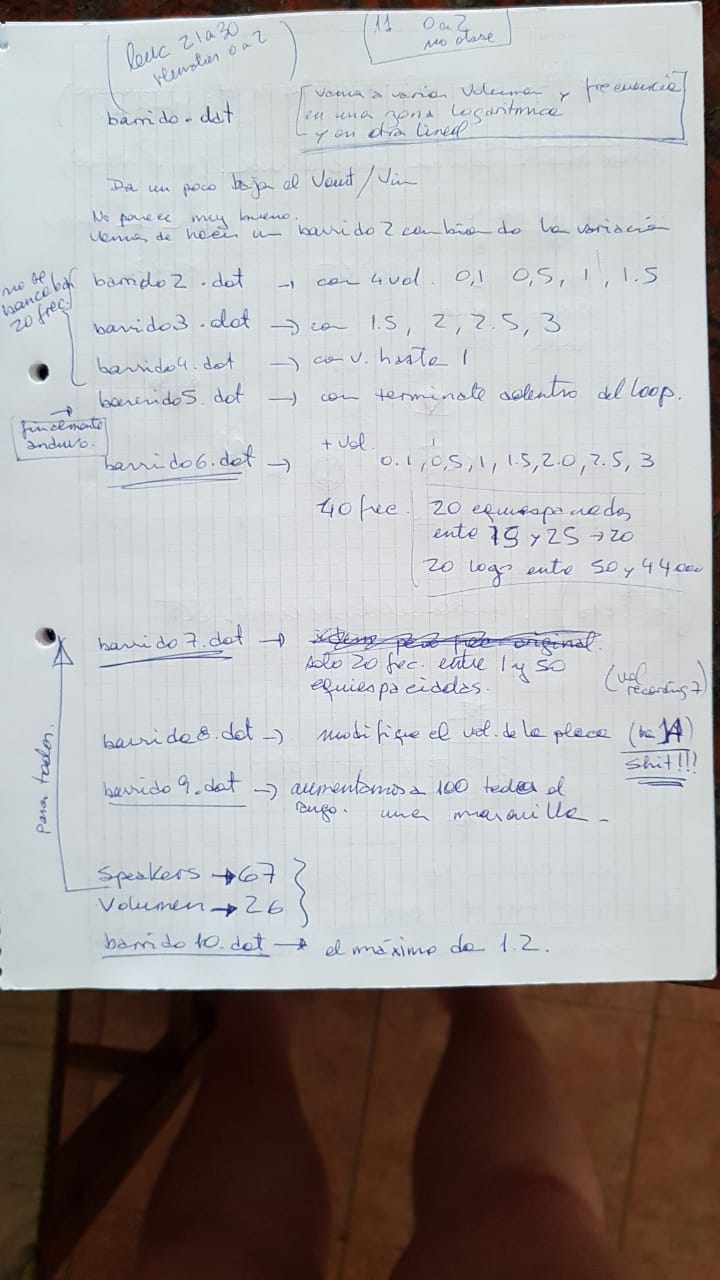 21 a 30
0 a 2
11 0 a 2
no
barrido.dat
vamos a variar volumen y frecuencia
en una zona logaritmica
y en otra lineal
Da un poco baja el Vout/Vin
No parece muy bueno.
vamos de hacer un barrido 2 cambiando la variación
no se
20 frec.
barrido2.dat → con 4 vol. 0,1 0,5, 1, 1.5
barrido3.dat → con 1.5, 2, 2.5, 3
barrido4.dat → con v. hasta 1
barrido5.dat → con terminate adentro del loop.
finalmente
anduvo.
barrido6.dat → + vol 0.1, 0,5, 1, 1.5, 2.0, 2.5, 3
40 frec. 20 equiespaciados
ente 15 y 25 → 20
20 logo ente 50 y 44000
barrido7.dat →
solo 20 frec. entre 1 y 50
equiespaciadas.
(vol
recording 7)
barrido8.dat → modifique el vol. de la placa (14)
Shit!!!
barrido9.dat → aumentamos a 100 todo el
rango. una maravilla.
para todos.
Speakers → 67
Volumen → 26
barrido10.dat → el máximo da 1.2.